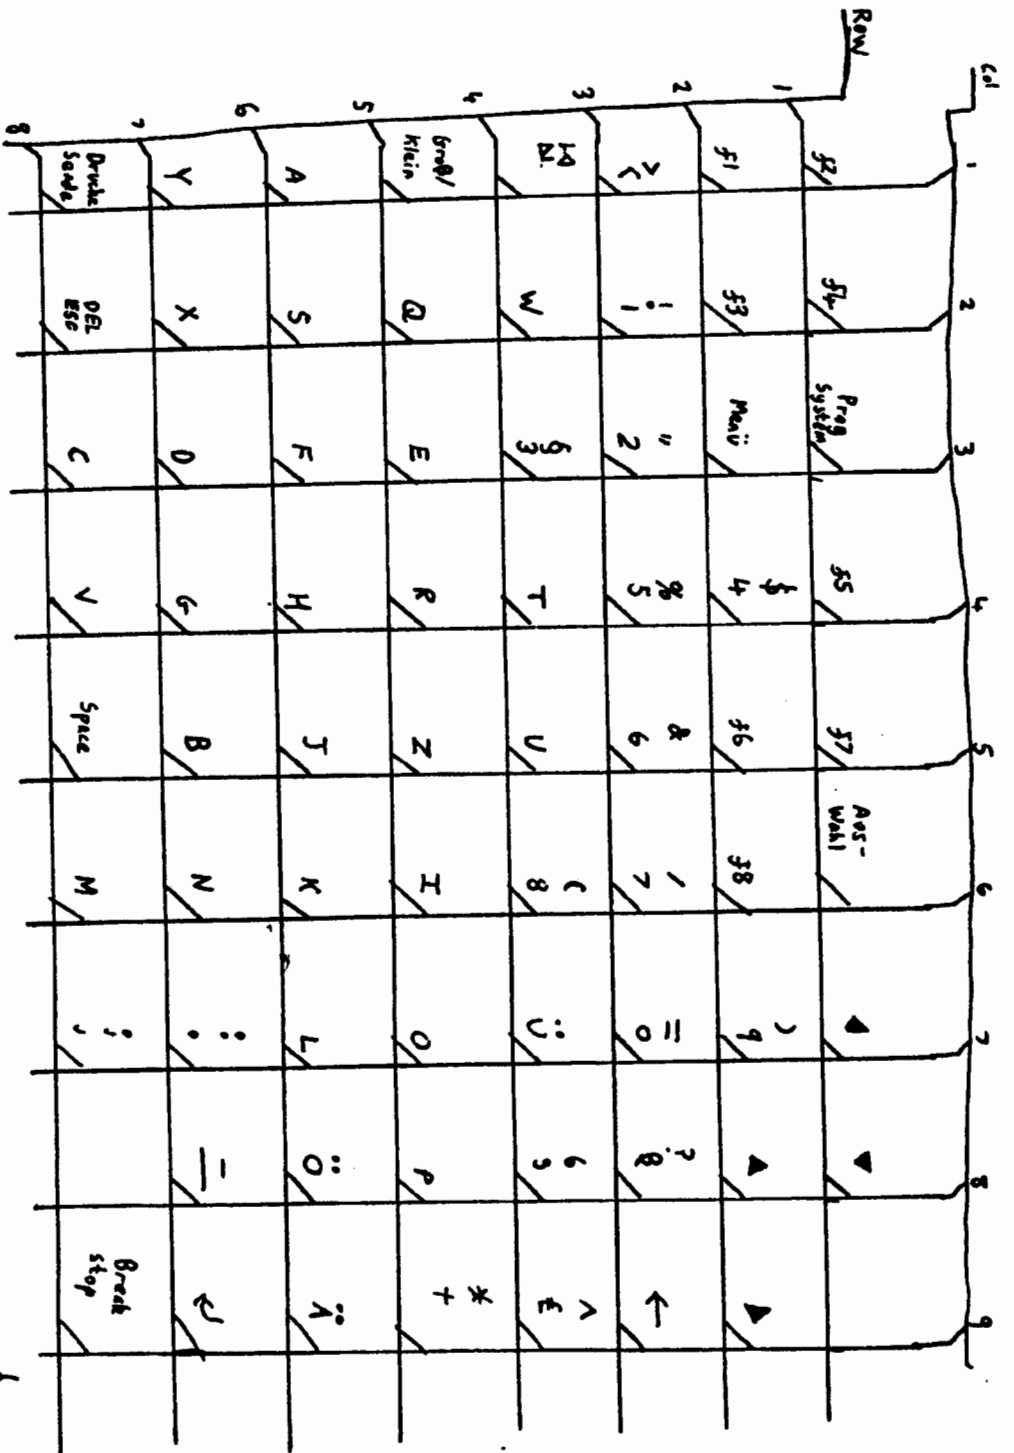 Col 1 2 3 4 5 6 7 8 9
Row
1 f2 f4 Prog System f5 f7 Aus-Wahl
2 f1 f3 Menü $ 4 f6 f8 ) 9
3 > < ! 1 " 2 % 5 & 6 / 7 = 0 ? ß
4 W § 3 T U ( 8 Ü ^ £
5 Groß/ Klein Q E R Z I O P * +
6 A S F H J K L Ö Ä
7 Y X D G B N : . - _ ↵
8 Drucke Sende DEL ESC C V Space M ; , Break Stop